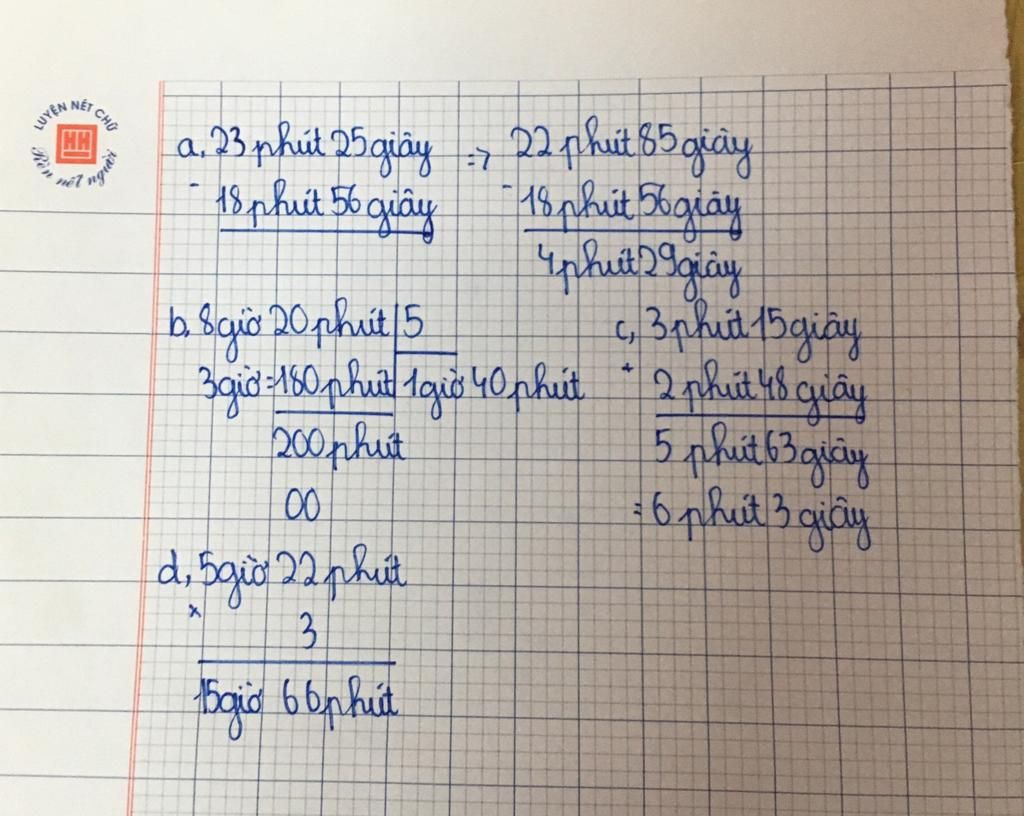 LUYỆN NÉT CHỮ
HH
Rèn nết người
a, 23 phút 25 giây => 22 phút 85 giây
- 18 phút 56 giây - 18 phút 56 giây
4 phút 29 giây
b, 8 giờ 20 phút 5
3 giờ = 180 phút 1 giờ 40 phút
200 phút
00
c, 3 phút 15 giây
+ 2 phút 48 giây
5 phút 63 giây
= 6 phút 3 giây
d, 5 giờ 22 phút
x 3
15 giờ 66 phút